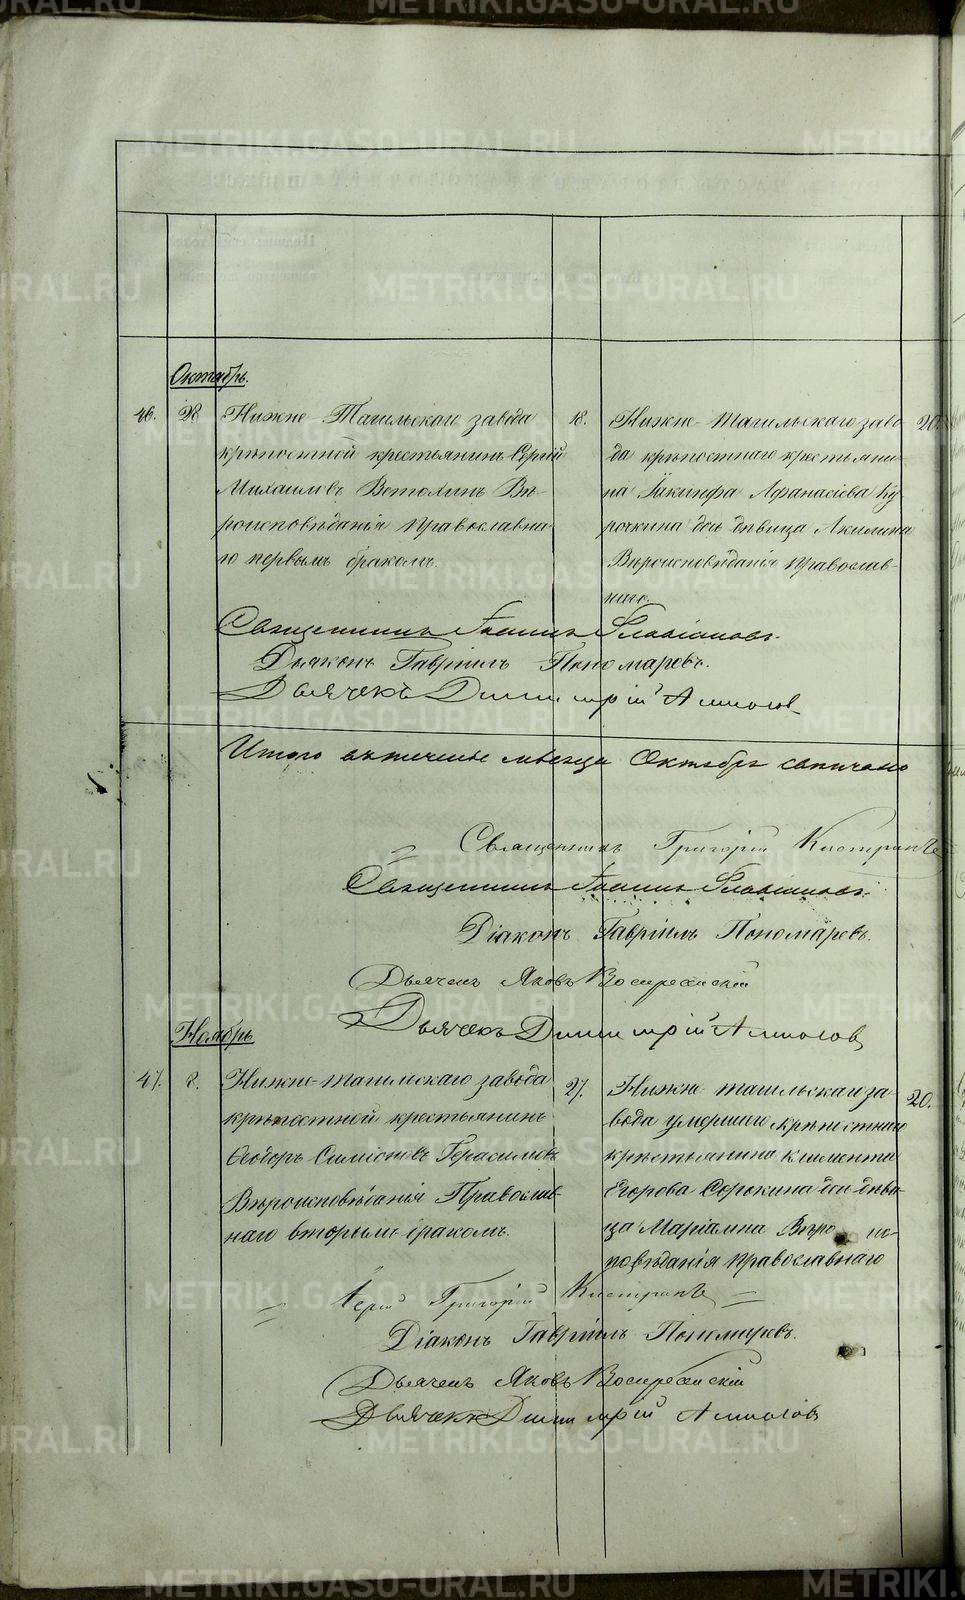 Октябрь.
46. 28 Нижне-Тагильскаго завода
крѣпостной крестьянинъ Сергій
Михаиловъ Ветохинъ Вѣ-
роисповѣданія православна-
го первымъ бракомъ.
18. Нижне-Тагильскаго заво-
да крѣпостнаго крестьяни-
на Іакинфа Афанасіева Ку
рочкина дочь дѣвица Акилина
Вѣроисповѣданія православ-
наго.
20.
Священникъ Іоаннъ
Дьяконъ Гавріилъ Пономаревъ.
Дьячекъ Димитрій
Итого втеченіе мѣсяца Октября
Священникъ Григорій
Священникъ Іоаннъ
Діаконъ Гавріилъ Пономаревъ.
Дьячекъ Яковъ Воскресенскій
Дьячекъ Димитрій
Ноябрь
47. 2. Нижне-тагильскаго завода
крѣпостной крестьянинъ
Ѳеодоръ Симіоновъ Герасимовъ
Вѣроисповѣданія Православ-
наго вторымъ бракомъ.
27. Нижне-тагильскаго за-
вода умершаго крѣпостнаго
крестьянина Климента
Егорова Сорокина дочь дѣви-
ца Маріамна Вѣро ис-
повѣданія православнаго
20.
Іерей Григорій
Діаконъ Гавріилъ Пономаревъ.
Дьячекъ Яковъ Воскресенскій
Дьячекъ Димитрій
METRIKI.GASO-URAL.RU